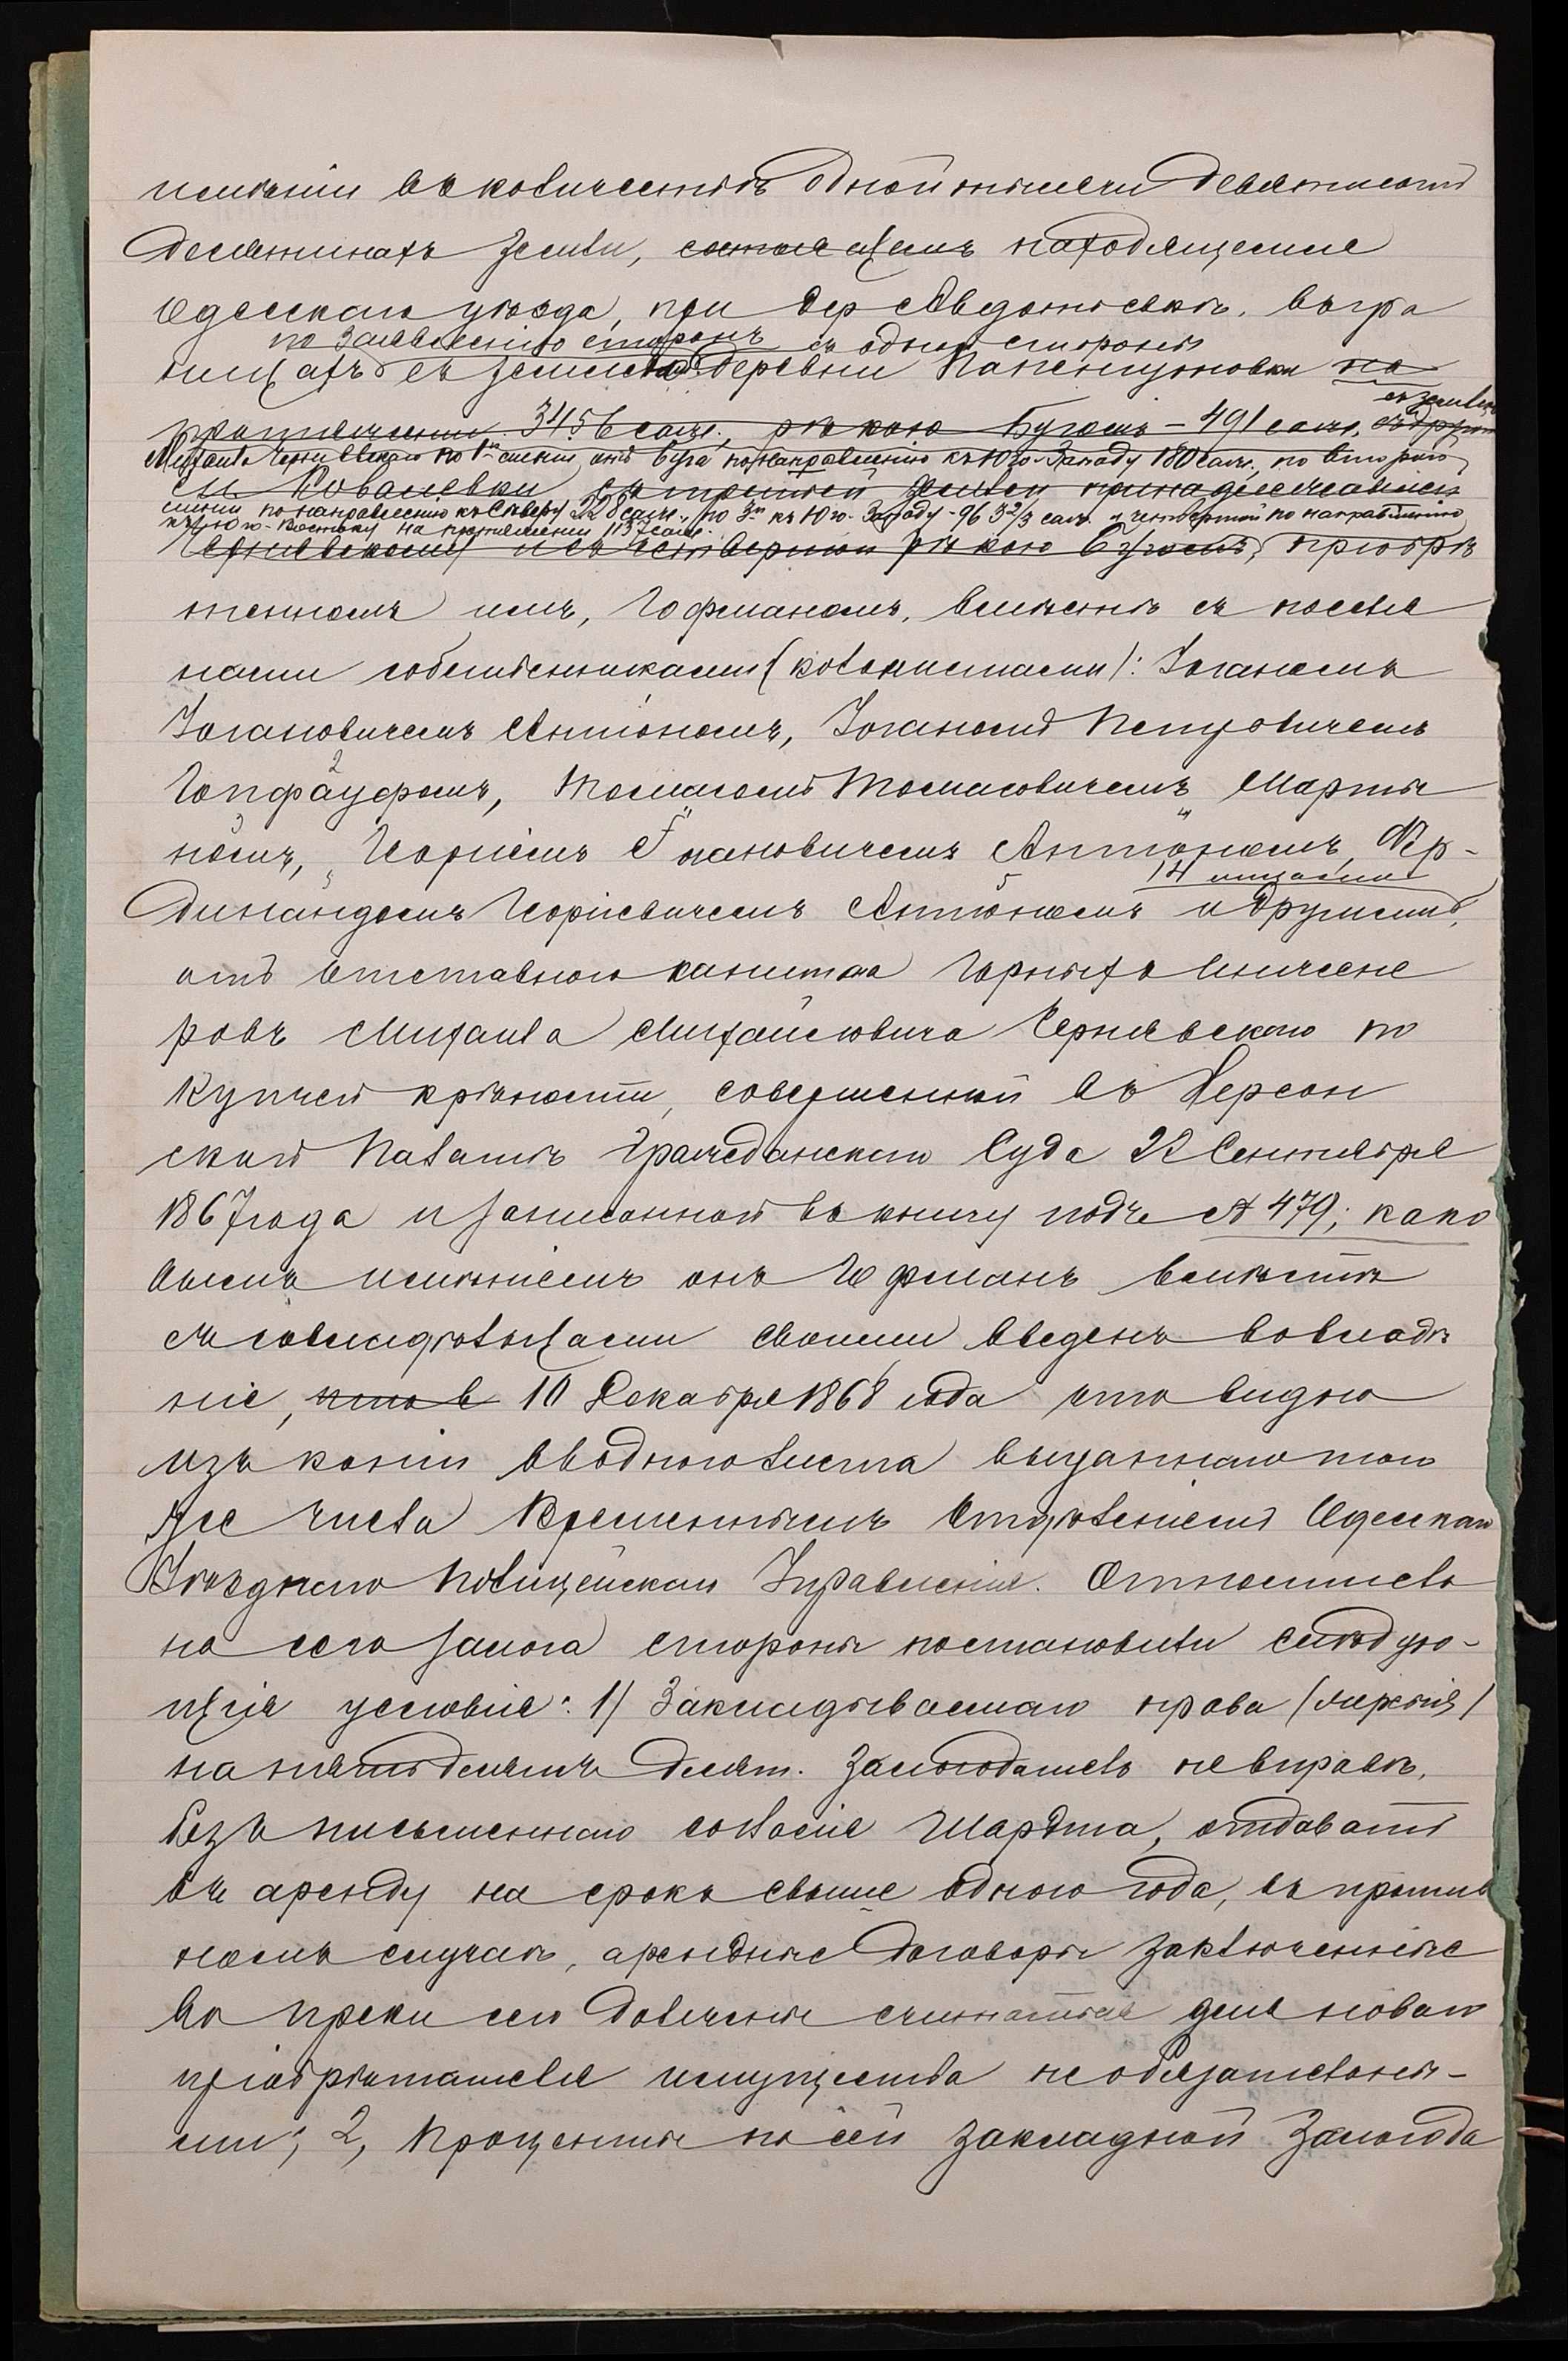 имѣніи въ количествѣ одной тысячи девятисотъ
десятинахъ земли, состоящемъ находящемся
Одесскаго уѣзда, при дер Авдотьевкѣ, въ гра
по заявленію сторонъ съ одной стороны
ницахъ съ землею деревни Капентуловки на
съ землею
протяженіи 3456 саж., рѣкою Бугомъ – 491 саж., съ друг
Михаила Чернявскаго по 1й линіи отъ Буга по направленію къ Юго-Западу 180 саж., по второй
ей Ковалевки съ третьей землей принадлежащей
линіи по направленію къ Сѣверу 228 саж., по 3й къ Юго-Западу – 963 2/3 саж. и четвертой по направленію
къ Юго-Востоку на протяженіи 1137 саж.
Чернявскому и съ четвертой рѣкою Бугомъ, пріобрѣ
тенномъ имъ, Гофманомъ, вмѣстѣ съ поселя
нами собственниками (колонистами): Іоганомъ
Іогановичемъ Антономъ, Іоганомъ Петровичемъ
Гопфауфомъ, Томасомъ Томасовичемъ Марти
номъ, Георгіемъ Іогановичемъ Антономъ, Фер-
14 лицами
динандомъ Георгіевичемъ Антономъ и другими,
отъ отставного капитана Горныхъ Инжене
ровъ Михаила Михайловича Чернявскаго по
купчей крѣпости, совершенной въ Херсон
ской Палатѣ Гражданскаго Суда 22 Сентября
1867 года и записанной въ книгу подъ № 479; како
вымъ имѣніемъ онъ Гофманъ вмѣстѣ
съ совладѣльцами своими введенъ во владѣ
ніе, что в 10 Декабря 1868 года что видно
изъ копіи вводнаго листа выданнаго того
же числа Временнымъ Отдѣленіемъ Одесскаго
Уѣзднаго Полицейскаго Управленія. Относитель
но сего залога стороны постановили слѣдую-
щія условія: 1) Закладываемаго права (
на пятьдесятъ десят. Залогодатель не вправѣ,
безъ письменнаго согласія Шардта, отдавать
въ аренду на срокъ свыше одного года, въ против
номъ случаѣ, арендные договоры заключенные
во преки сего должны считаться для новаго
пріобрѣтателя имущества не обязательны-
ми; 2, Проценты по сей закладной Залогода